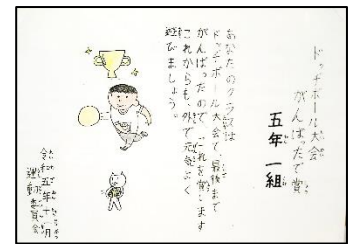 ドッチボール大会
がんばったで賞
五年一組
あなたのクラスは
ドッチボール大会で、最後まで
がんばったので、これを賞します
これからも、外で元気よく
遊びましょう。
令和五年十一月
運動委員会